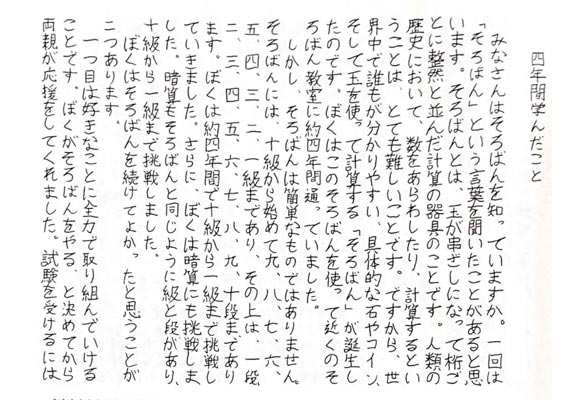 四年間学んだこと
みなさんはそろばんを知っていますか。一回は
「そろばん」という言葉を聞いたことがあると思
います。そろばんとは、玉が串ざしになって桁ご
とに整然と並んだ計算の器具のことです。人類の
歴史において、数をあらわしたり、計算するとい
うことは、とても難しいことです。ですから、世
界中で誰もが分かりやすい、具体的な石やコイン、
そして玉を使って計算する「そろばん」が誕生し
たのです。ぼくはこのそろばんを使って近くのそ
ろばん教室に約四年間通っていました。
しかし、そろばんは簡単なものではありません。
そろばんには、十級から始めて九、八、七、六、
五、四、三、二、一級まであり、その上は、一段、
二、三、四、五、六、七、八、九、十段まであり
ます。ぼくは約四年間で十級から一級まで挑戦し
ていきました。さらに、ぼくは暗算にも挑戦しま
した。暗算もそろばんと同じように級と段があり、
十級から一級まで挑戦しました。
ぼくはそろばんを続けてよかったと思うことが
二つあります。
一つ目は好きなことに全力で取り組んでいける
ことです。ぼくがそろばんをやる、と決めてから
両親が応援をしてくれました。試験を受けるには